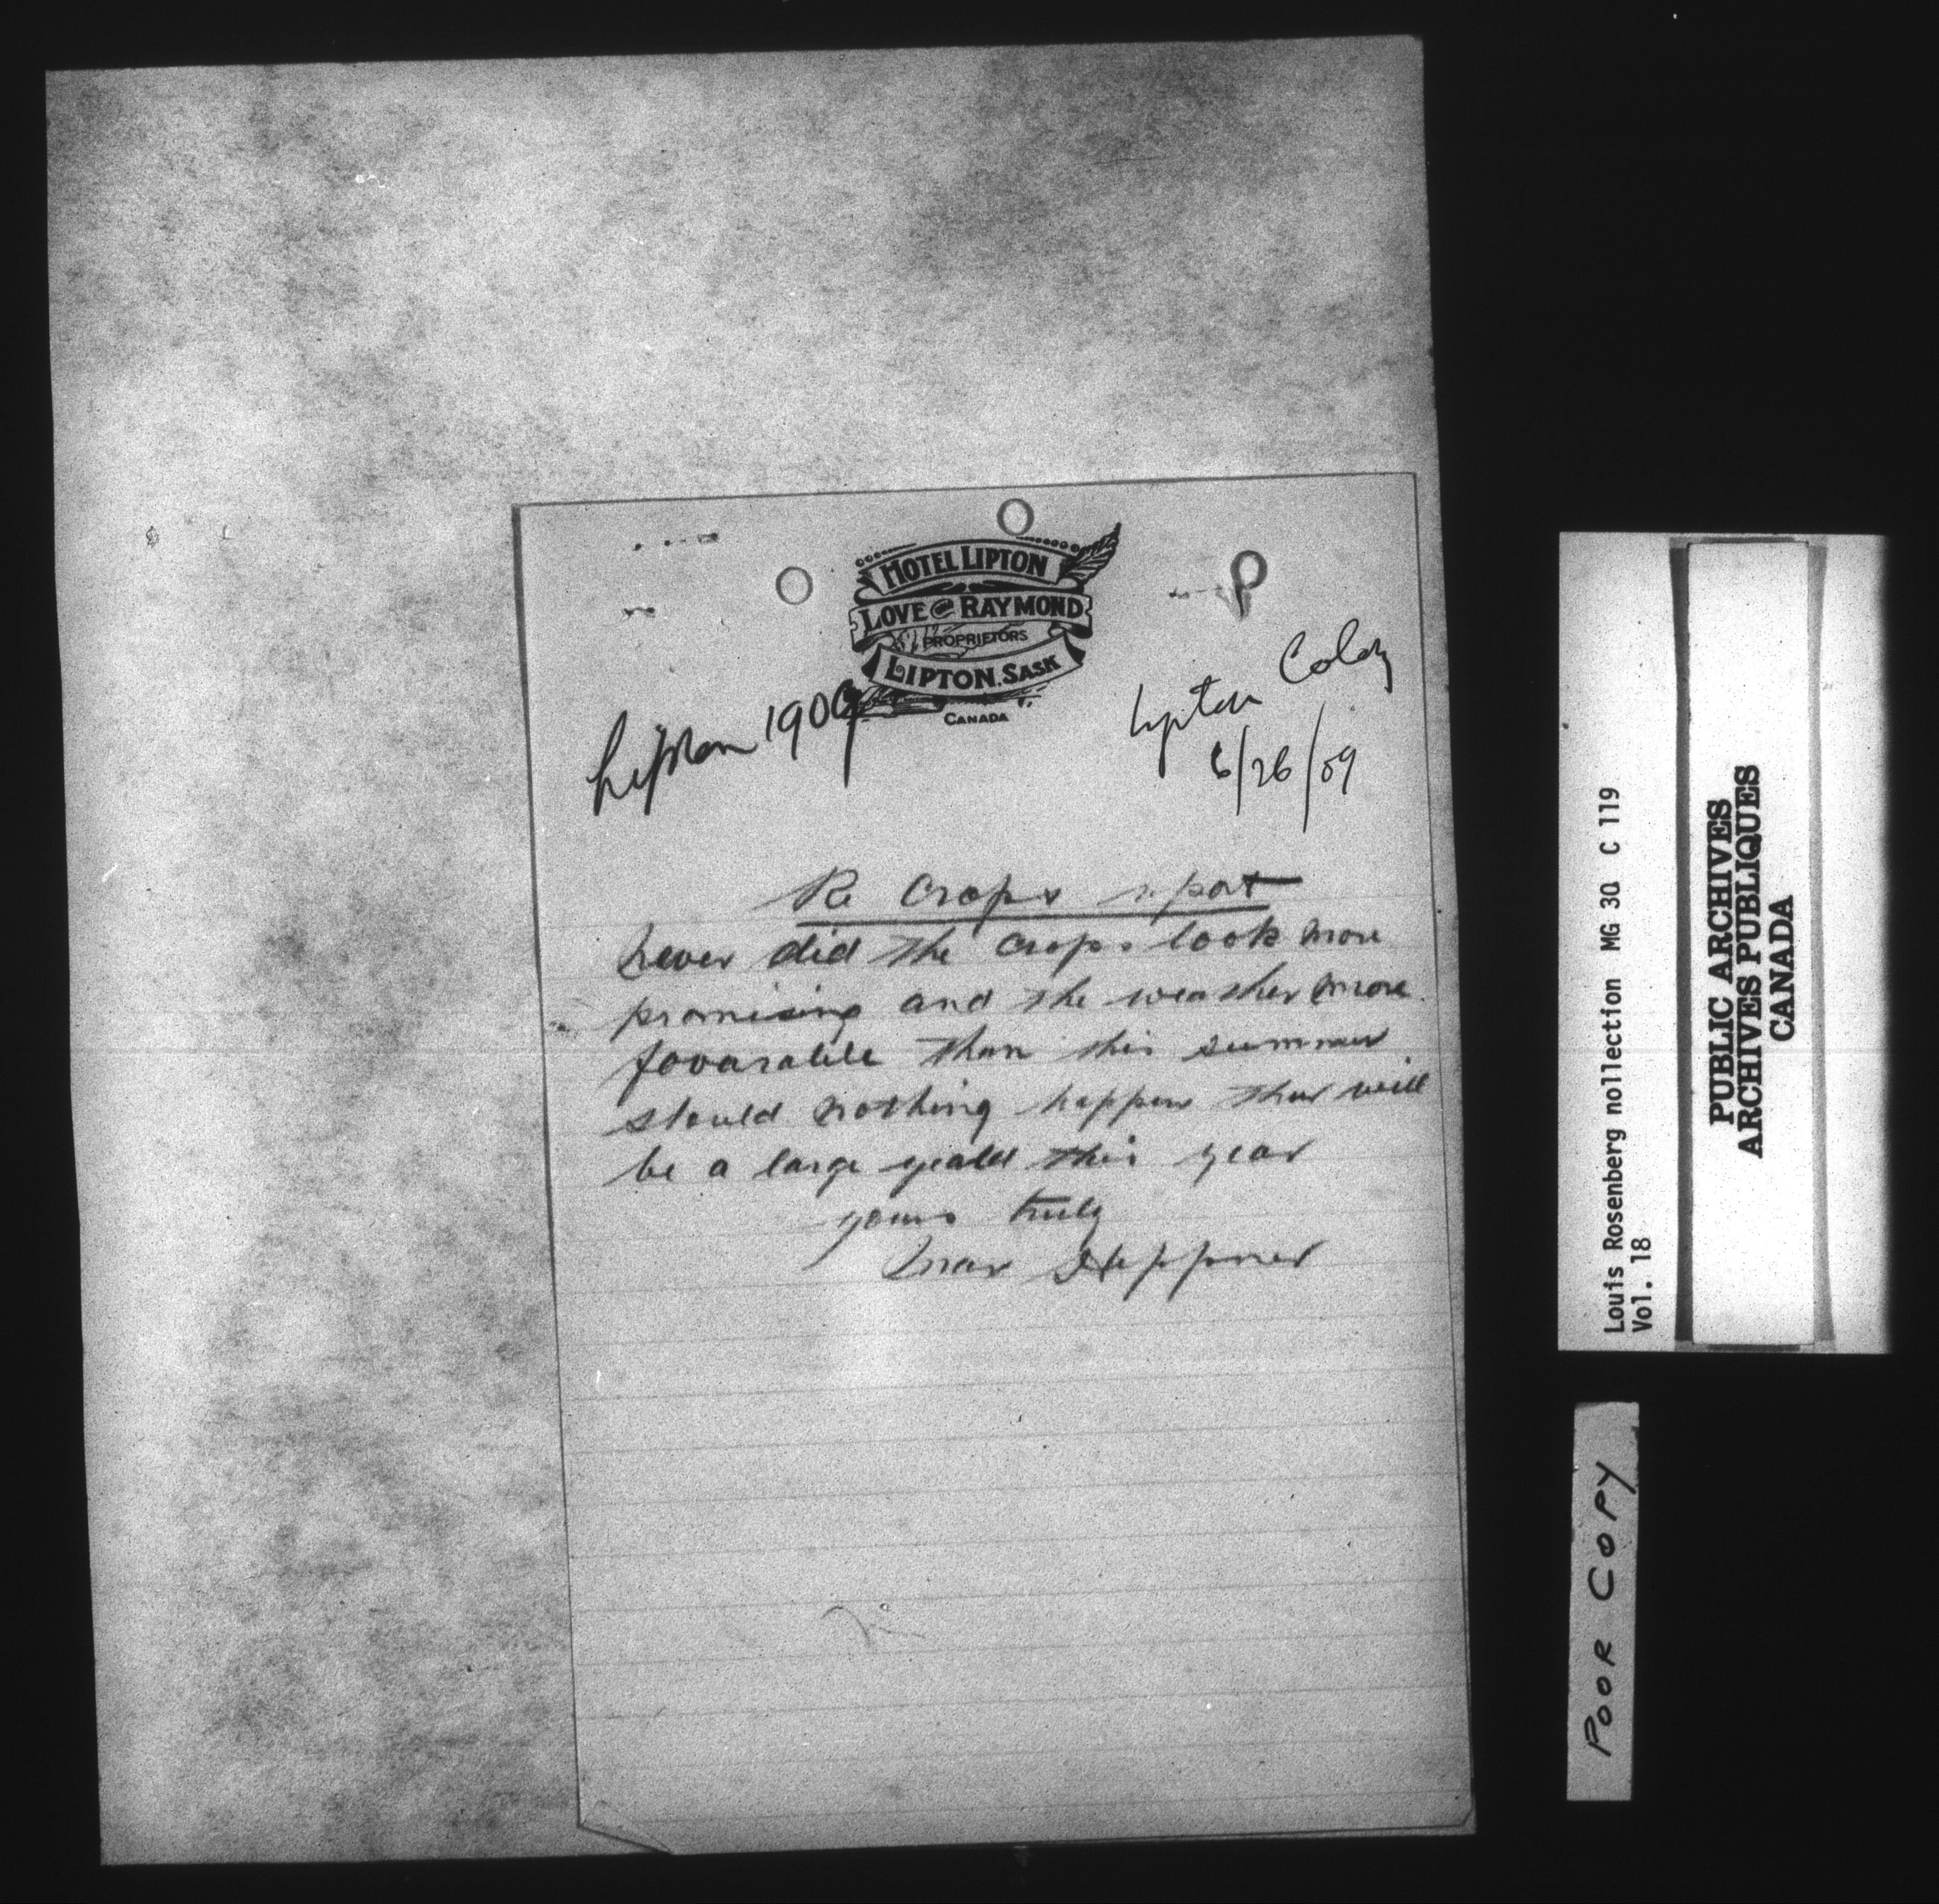 HOTEL LIPTON
LOVE and RAYMOND
PROPRIETORS
LIPTON, SASK
CANADA
Lipton 1909
Lipton Colony
6/26/09
Re Crops report
Never did the crops look more
promising and the weather more
favarable than this summer
should nothing happen ther will
be a large yeald this year
yours truly
Max Heppner
Louis Rosenberg nollection MG 30 C 119
Vol. 18
PUBLIC ARCHIVES
ARCHIVES PUBLIQUES
CANADA
POOR COPY